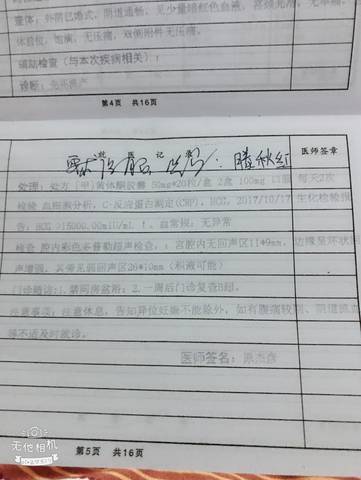 查体：外阴已婚式，阴道通畅，见少量暗红色血液，宫颈光滑，无举痛，
体前位，饱满，无压痛，双侧附件无压痛。
辅助检查（与本次疾病相关）：
诊断：先兆流产
第4页 共16页
就 医 记 录
医师签章
：腾秋红
处理：处方 [甲]黄体酮胶囊 50mg*20粒/盒 2盒 100mg 口服 每天2次
检验 血细胞分析，C-反应蛋白测定(CRP)，HCG，2017/10/17 生化检验报
告：HCG 315000.00mIU/mL ↑。血常规：无异常
检查 腔内彩色多普勒超声检查，：宫腔内无回声区11*9mm，边缘呈环状
声增强，其旁见弱回声区26*10mm（积液可能）
门诊随访：1.禁同房盆浴；2.一周后门诊复查B超。
注意事项：注意休息，告知异位妊娠不能除外，如有腹痛较剧、阴道流血
等不适及时就诊。
医师签名：
第5页 共16页
无他相机